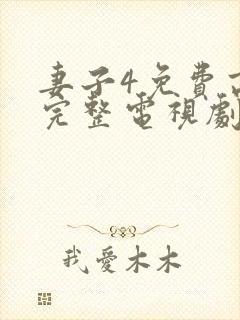 妻子4免費
完整電視劇
我愛木木